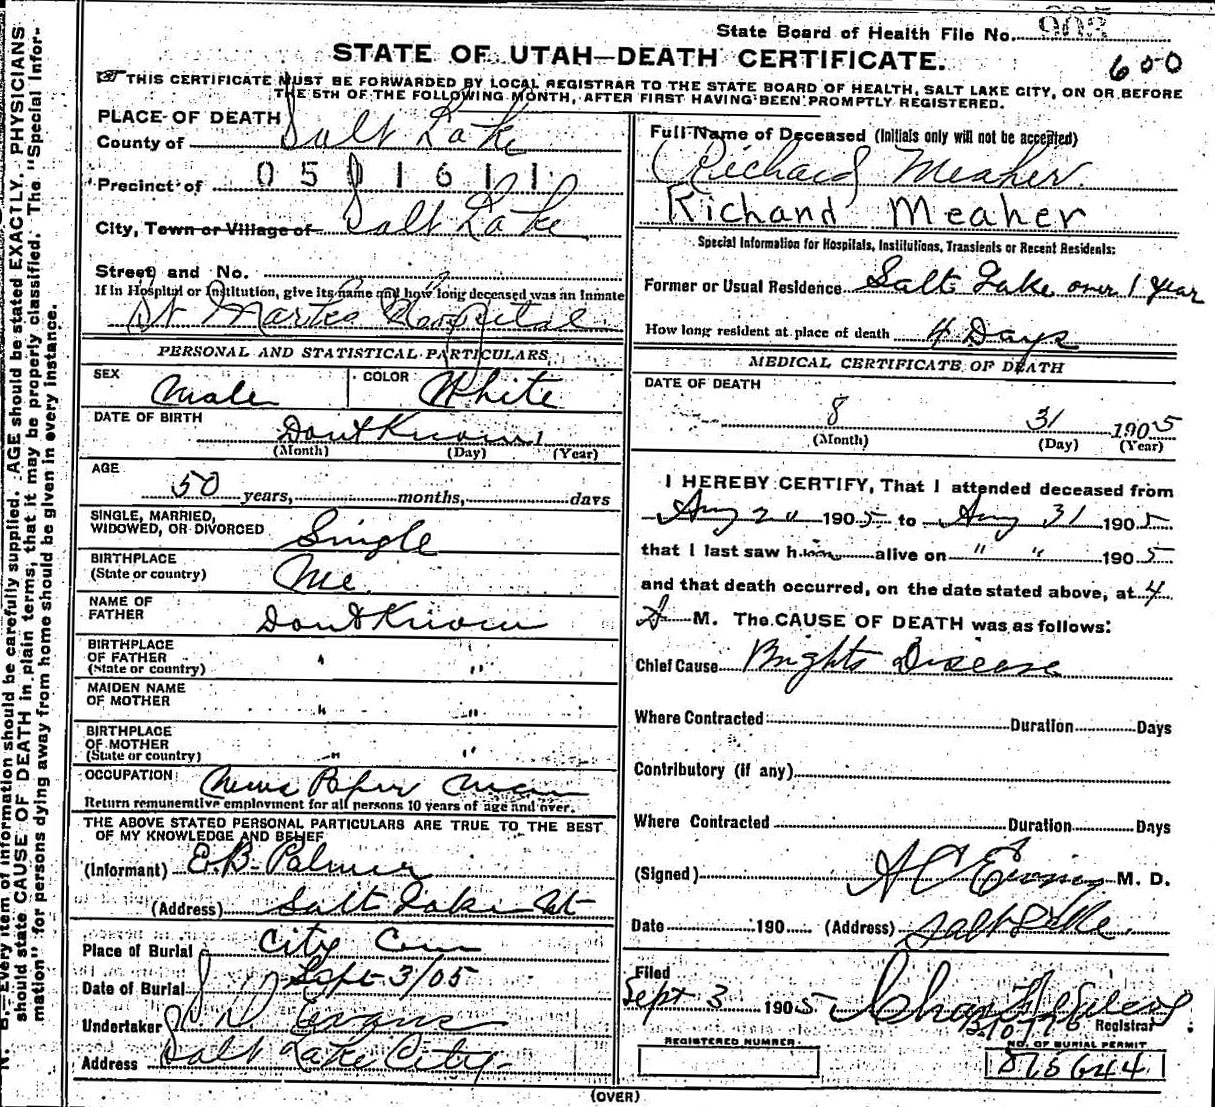 N. B.—Every item of information should be carefully supplied. AGE should be stated EXACTLY. PHYSICIANS
should state CAUSE OF DEATH in plain terms, that it may be properly classified. The "Special Infor-
mation" for persons dying away from home should be given in every instance.
State Board of Health File No. 903
STATE OF UTAH—DEATH CERTIFICATE.
600
THIS CERTIFICATE MUST BE FORWARDED BY LOCAL REGISTRAR TO THE STATE BOARD OF HEALTH, SALT LAKE CITY, ON OR BEFORE
THE 5TH OF THE FOLLOWING MONTH, AFTER FIRST HAVING BEEN PROMPTLY REGISTERED.
PLACE OF DEATH
County of Salt Lake
Precinct of 0501611
City, Town or Village of Salt Lake
Street and No.
If in Hospital or Institution, give its name and how long deceased was an Inmate
St Marks Hospital
PERSONAL AND STATISTICAL PARTICULARS
SEX Male COLOR White
DATE OF BIRTH Dont Know 1
(Month) (Day) (Year)
AGE
50 years, months, days
SINGLE, MARRIED,
WIDOWED, OR DIVORCED Single
BIRTHPLACE
(State or country) Me.
NAME OF
FATHER Dont Know
BIRTHPLACE
OF FATHER " "
(State or country)
MAIDEN NAME
OF MOTHER " "
BIRTHPLACE
OF MOTHER
(State or country) " "
OCCUPATION News Paper Man
Return remunerative employment for all persons 10 years of age and over.
THE ABOVE STATED PERSONAL PARTICULARS ARE TRUE TO THE BEST
OF MY KNOWLEDGE AND BELIEF
(Informant) E.B. Palmer
(Address) Salt Lake
Place of Burial City Cem
Date of Burial Sept 3/05
Undertaker Evans
Address Salt Lake City
Full Name of Deceased (Initials only will not be accepted)
Richard Meaher.
Richard Meaher
Special Information for Hospitals, Institutions, Transients or Recent Residents:
Former or Usual Residence Salt Lake over 1 year
How long resident at place of death 4 Days
MEDICAL CERTIFICATE OF DEATH
DATE OF DEATH
8 31 1905
(Month) (Day) (Year)
I HEREBY CERTIFY, That I attended deceased from
Aug 1905 to Aug 31 1905
that I last saw him alive on " " 1905
and that death occurred, on the date stated above, at 4
M. The CAUSE OF DEATH was as follows:
Chief Cause Brights Disease
Where Contracted Duration Days
Contributory (if any)
Where Contracted Duration Days
(Signed) A C Ewing M. D.
Date 190 (Address) Salt Lake.
Filed
Sept 3 1905
Registrar
REGISTERED NUMBER.
NO. OF BURIAL PERMIT
875644
(OVER)